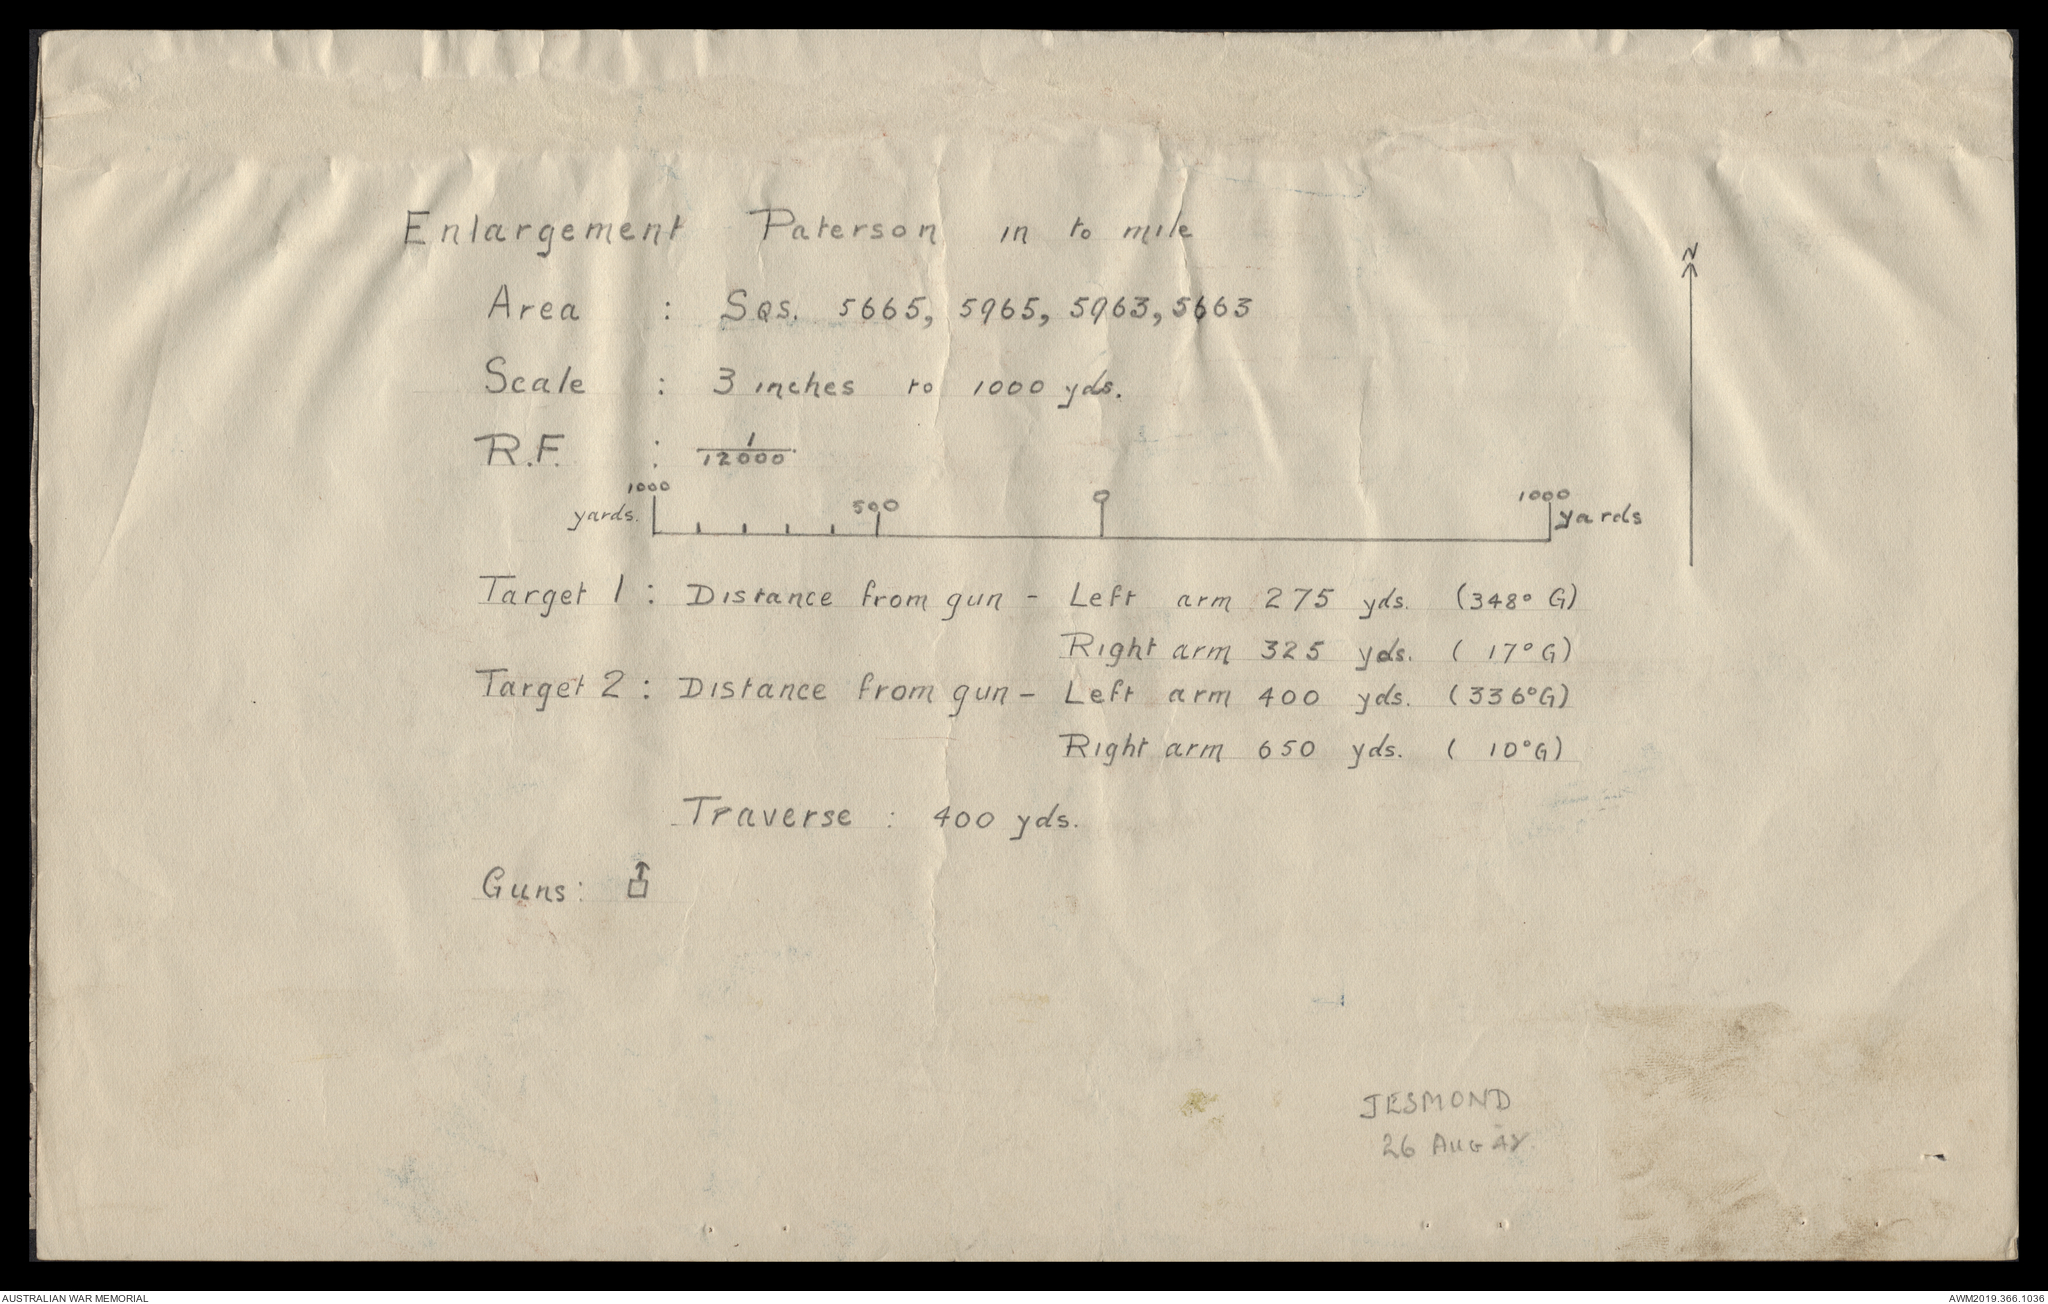 Enlargement Paterson in to mile
N
Area : Sqs. 5665, 5965, 5963, 5663
Scale : 3 inches to 1000 yds.
R.F. : 1/12000
1000 500 0 1000
yards. yards
Target 1 : Distance from gun - Left arm 275 yds. (348° G)
Right arm 325 yds. ( 17° G)
Target 2 : Distance from gun - Left arm 400 yds. (336° G)
Right arm 650 yds. ( 10° G)
Traverse : 400 yds.
Guns:
JESMOND
26 AUG
AUSTRALIAN WAR MEMORIAL
AWM2019.366.1036